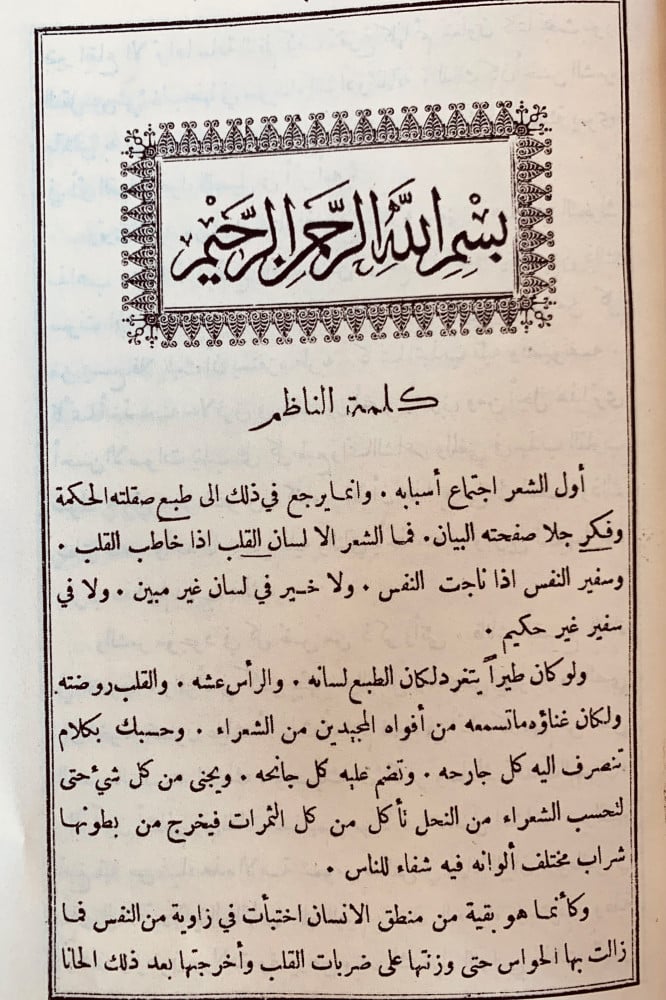 بِسْمِ اللهِ الرَّحْمٰنِ الرَّحِيْمِ
كلمة الناظم
أول الشعر اجتماع أسبابه . وانما يرجع في ذلك الى طبع صقلته الحكمة
وفكر جلا صفحته البيان . فما الشعر الا لسان القلب اذا خاطب القلب .
وسفير النفس اذا ناجت النفس . ولا خير في لسان غير مبين . ولا في
سفير غير حكيم .
ولو كان طيراً يتغرد لكان الطبع لسانه . والرأس عشه . والقلب روضته
ولكان غناؤه ما تسمعه من أفواه المجيدين من الشعراء . وحسبك بكلام
تنصرف اليه كل جارحه . وتضم عليه كل جانحه . ويجنى من كل شيء حتى
لتحسب الشعراء من النحل تأكل من كل الثمرات فيخرج من بطونها
شراب مختلف ألوانه فيه شفاء للناس .
وكأنما هو بقية من منطق الانسان اختبأت في زاوية من النفس فما
زالت بها الحواس حتى وزنتها على ضربات القلب وأخرجتها بعد ذلك الحانا